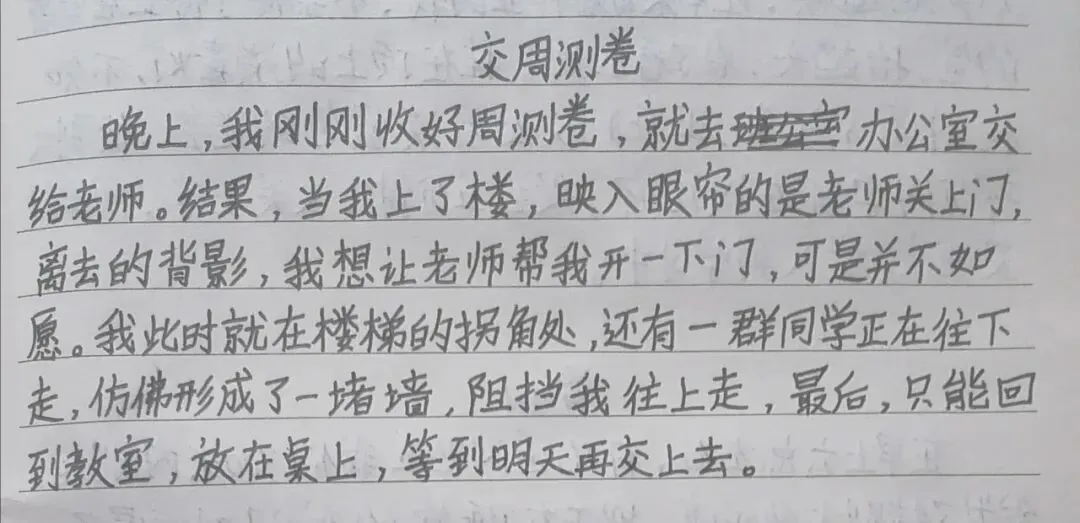 交周测卷
晚上，我刚刚收好周测卷，就去办公室交
给老师。结果，当我上了楼，映入眼帘的是老师关上门，
离去的背影，我想让老师帮我开一下门，可是并不如
愿。我此时就在楼梯的拐角处，还有一群同学正在往下
走，仿佛形成了一堵墙，阻挡我往上走，最后，只能回
到教室，放在桌上，等到明天再交上去。